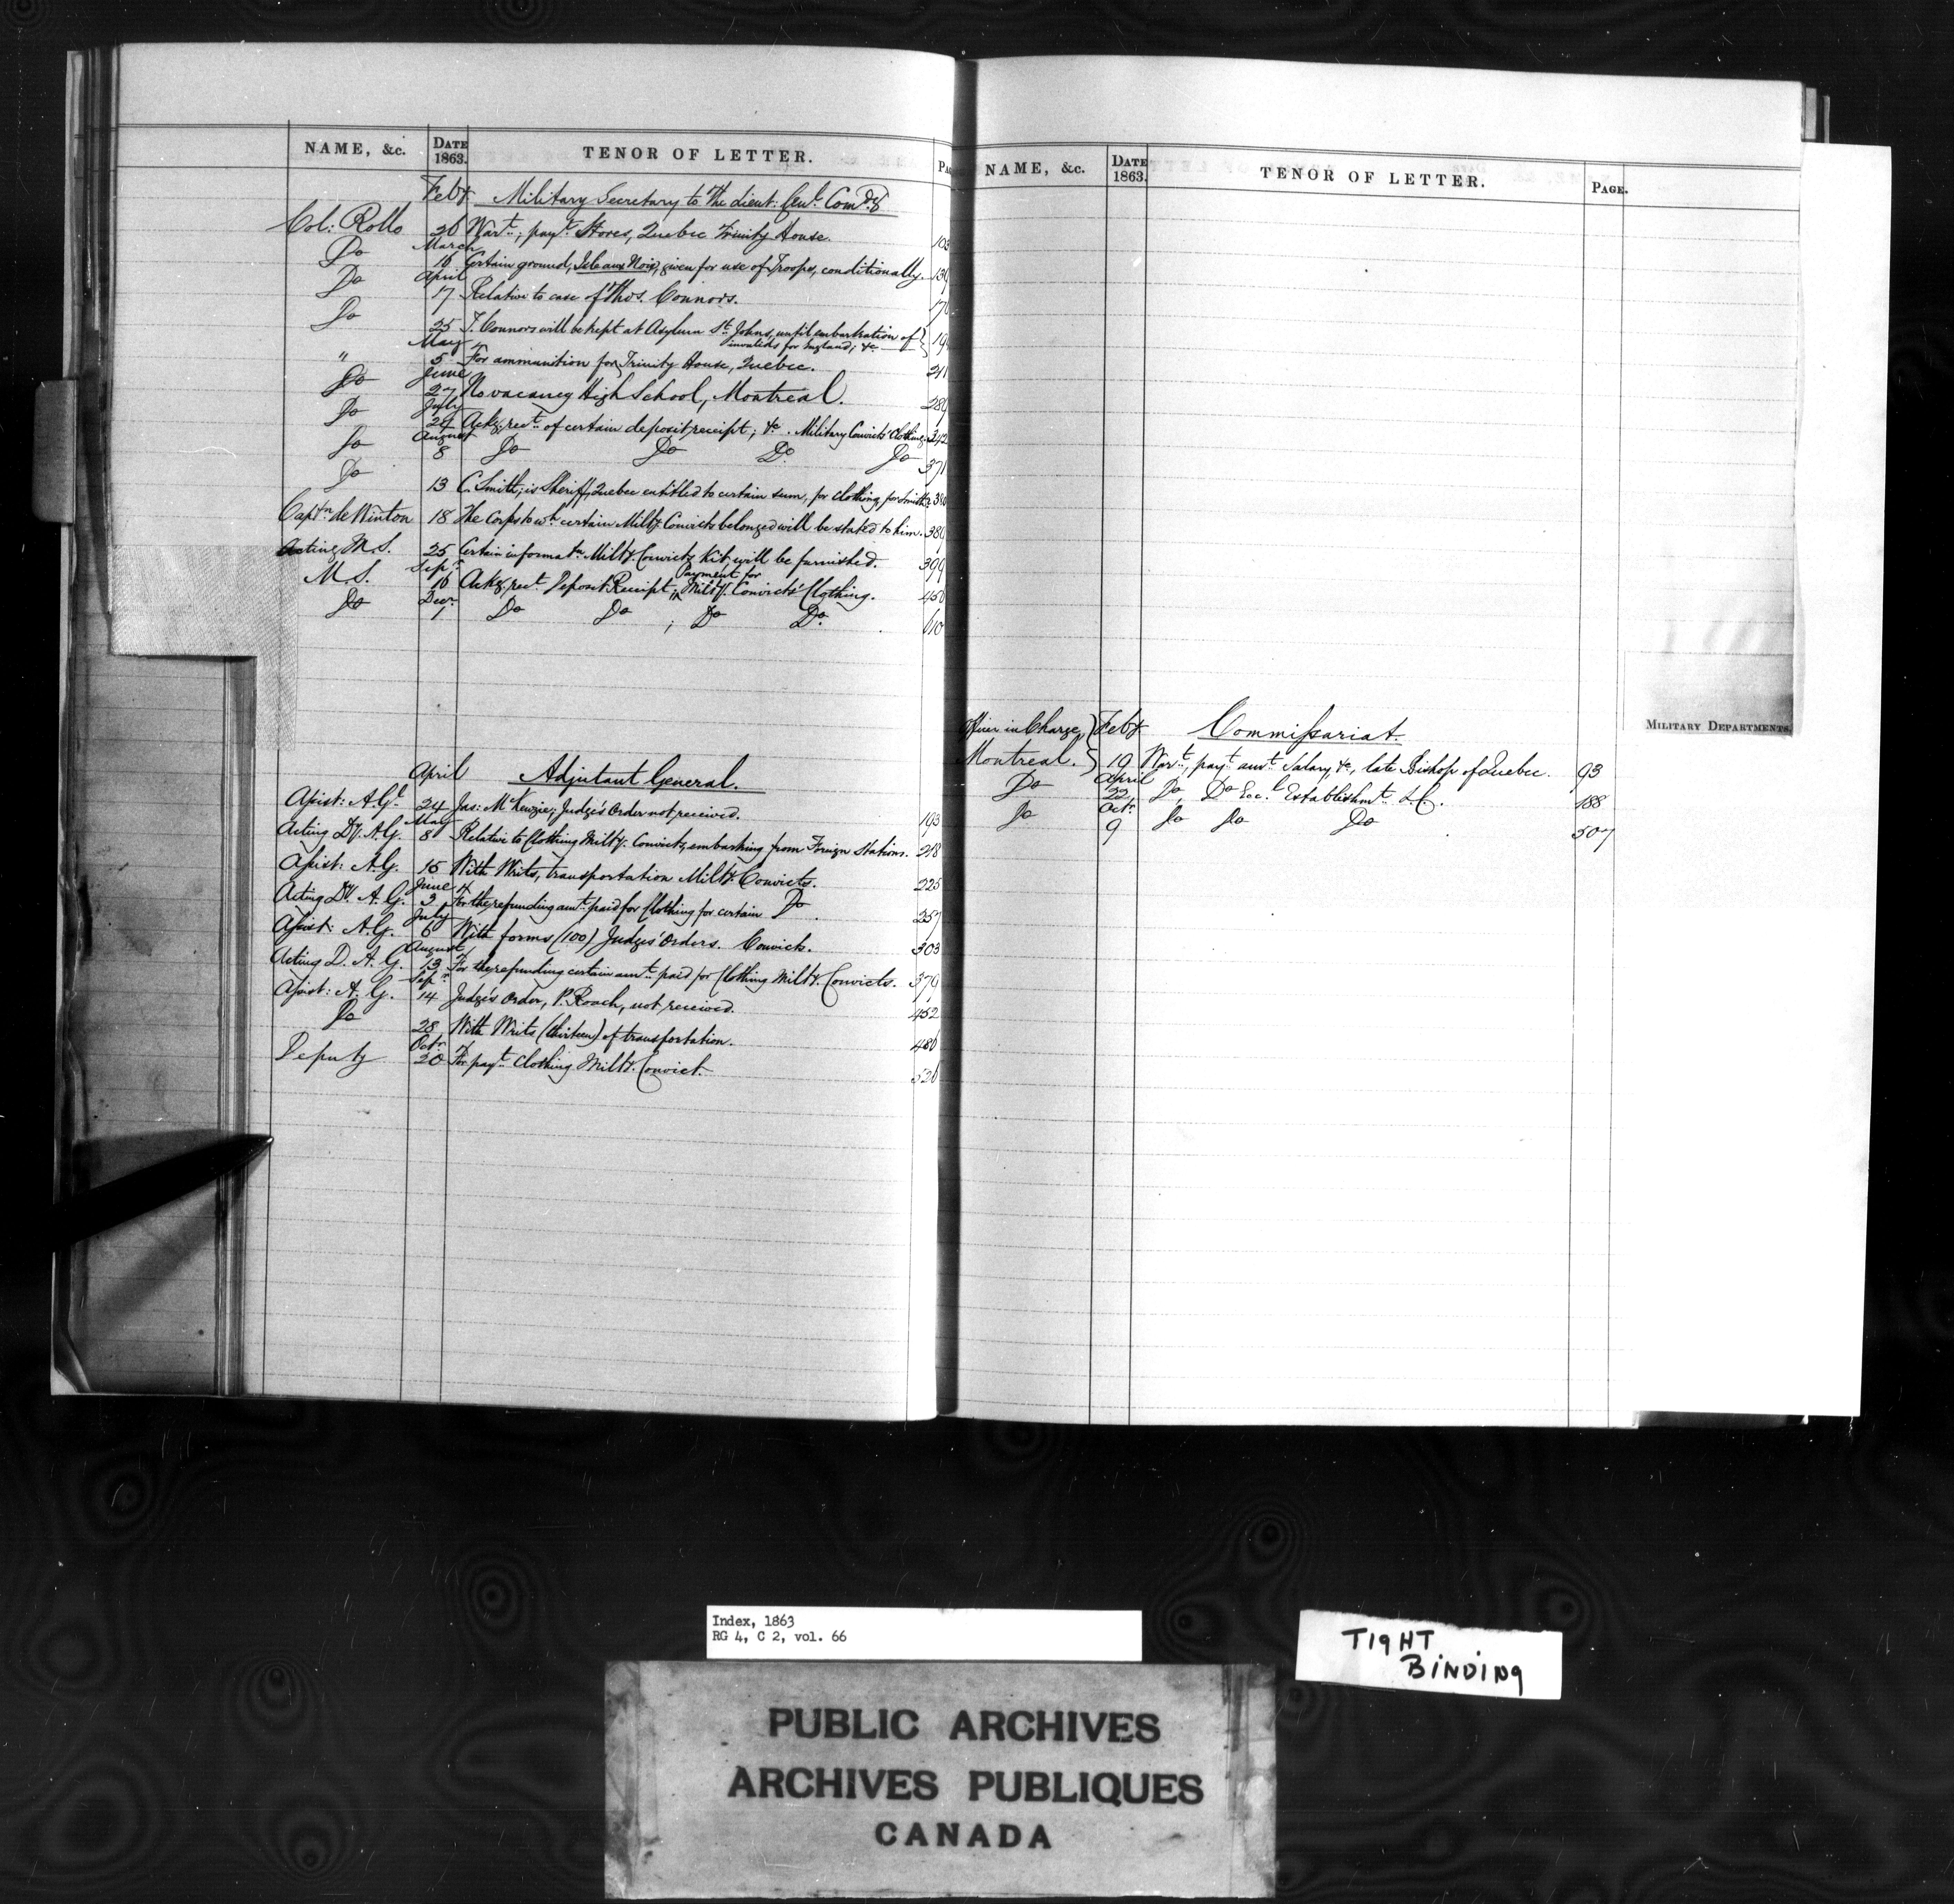 NAME, &c. DATE 1863. TENOR OF LETTER.
Feby Military Secretary to The Lieut: Genl. Comdg
Col: Rollo 26 Wart.; payt. Stores, Quebec Trinity House. 103
March
Do 16 Certain ground, Isle aux Noix, given for use of Troops, conditionally.
April
Do 17 Relative to case of Thos. Connors.
Do 25 T. Connors will be kept at Asylum St. Johns, until embarkation of
invalids for England; &c
May
" 5 For ammunition for Trinity House, Quebec. 211
June
Do 27 No vacancy High School, Montreal. 289
July
Do 24 Ackg. rect. of certain deposit receipt; &c. Military Convicts' Clothing. 342
August
Do 8 Do Do Do. Do 371
Do 13 C. Smith; is Sheriff, Quebec entitled to certain sum, for clothing, for Smith?
Captn. de Winton 18 The Corps to wh. certain Milty. Convicts belonged will be stated to him.
Acting M.S. 25 Certain informatn. Milty. Convicts Kit, will be furnished. 399
Sepr.
Payment for
M.S. 16 Ackg. rect. Deposit Receipt; Milty. Convicts' Clothing. 450
Decr.
Do 1 Do Do ; Do Do. 610
April Adjutant General.
Assist: A.Gl. 24 Jas: McKenzie; Judge's Order not received. 193
May
Acting Dy. A.G. 8 Relative to Clothing Milty. Convicts, embarking from Foreign Stations. 218
Assist: A.G. 15 With Writs, transportation Milty. Convicts. 225
June
Acting Dy. A.G. 3 For the refunding amt. paid for Clothing for certain Do. 257
July
Assist: A.G. 6 With forms (100) Judges' Orders. Convicts. 303
August
Acting D. A. G. 13 For the refunding certain amt. paid for Clothing Milty. Convicts. 379
Sepr.
Assist: A. G. 14 Judge's Order, P. Roach, not received. 452
Do 28 With Writs (thirteen) of transportation. 486
Octr.
Deputy 20 For payt. Clothing Milty. Convict. 526
NAME, &c. DATE 1863. TENOR OF LETTER. PAGE.
MILITARY DEPARTMENTS
Officer in Charge, Feby Commissariat.
Montreal. 19 Wart., payt. amt. Salary, &c, late Bishop of Quebec. 93
April
Do 22 Do, Do Eccl. Establishmt. L.C. 188
Octr.
Do 9 Do Do Do 507
Index, 1863
RG 4, C 2, vol. 66
TIGHT
BINDING
PUBLIC ARCHIVES
ARCHIVES PUBLIQUES
CANADA